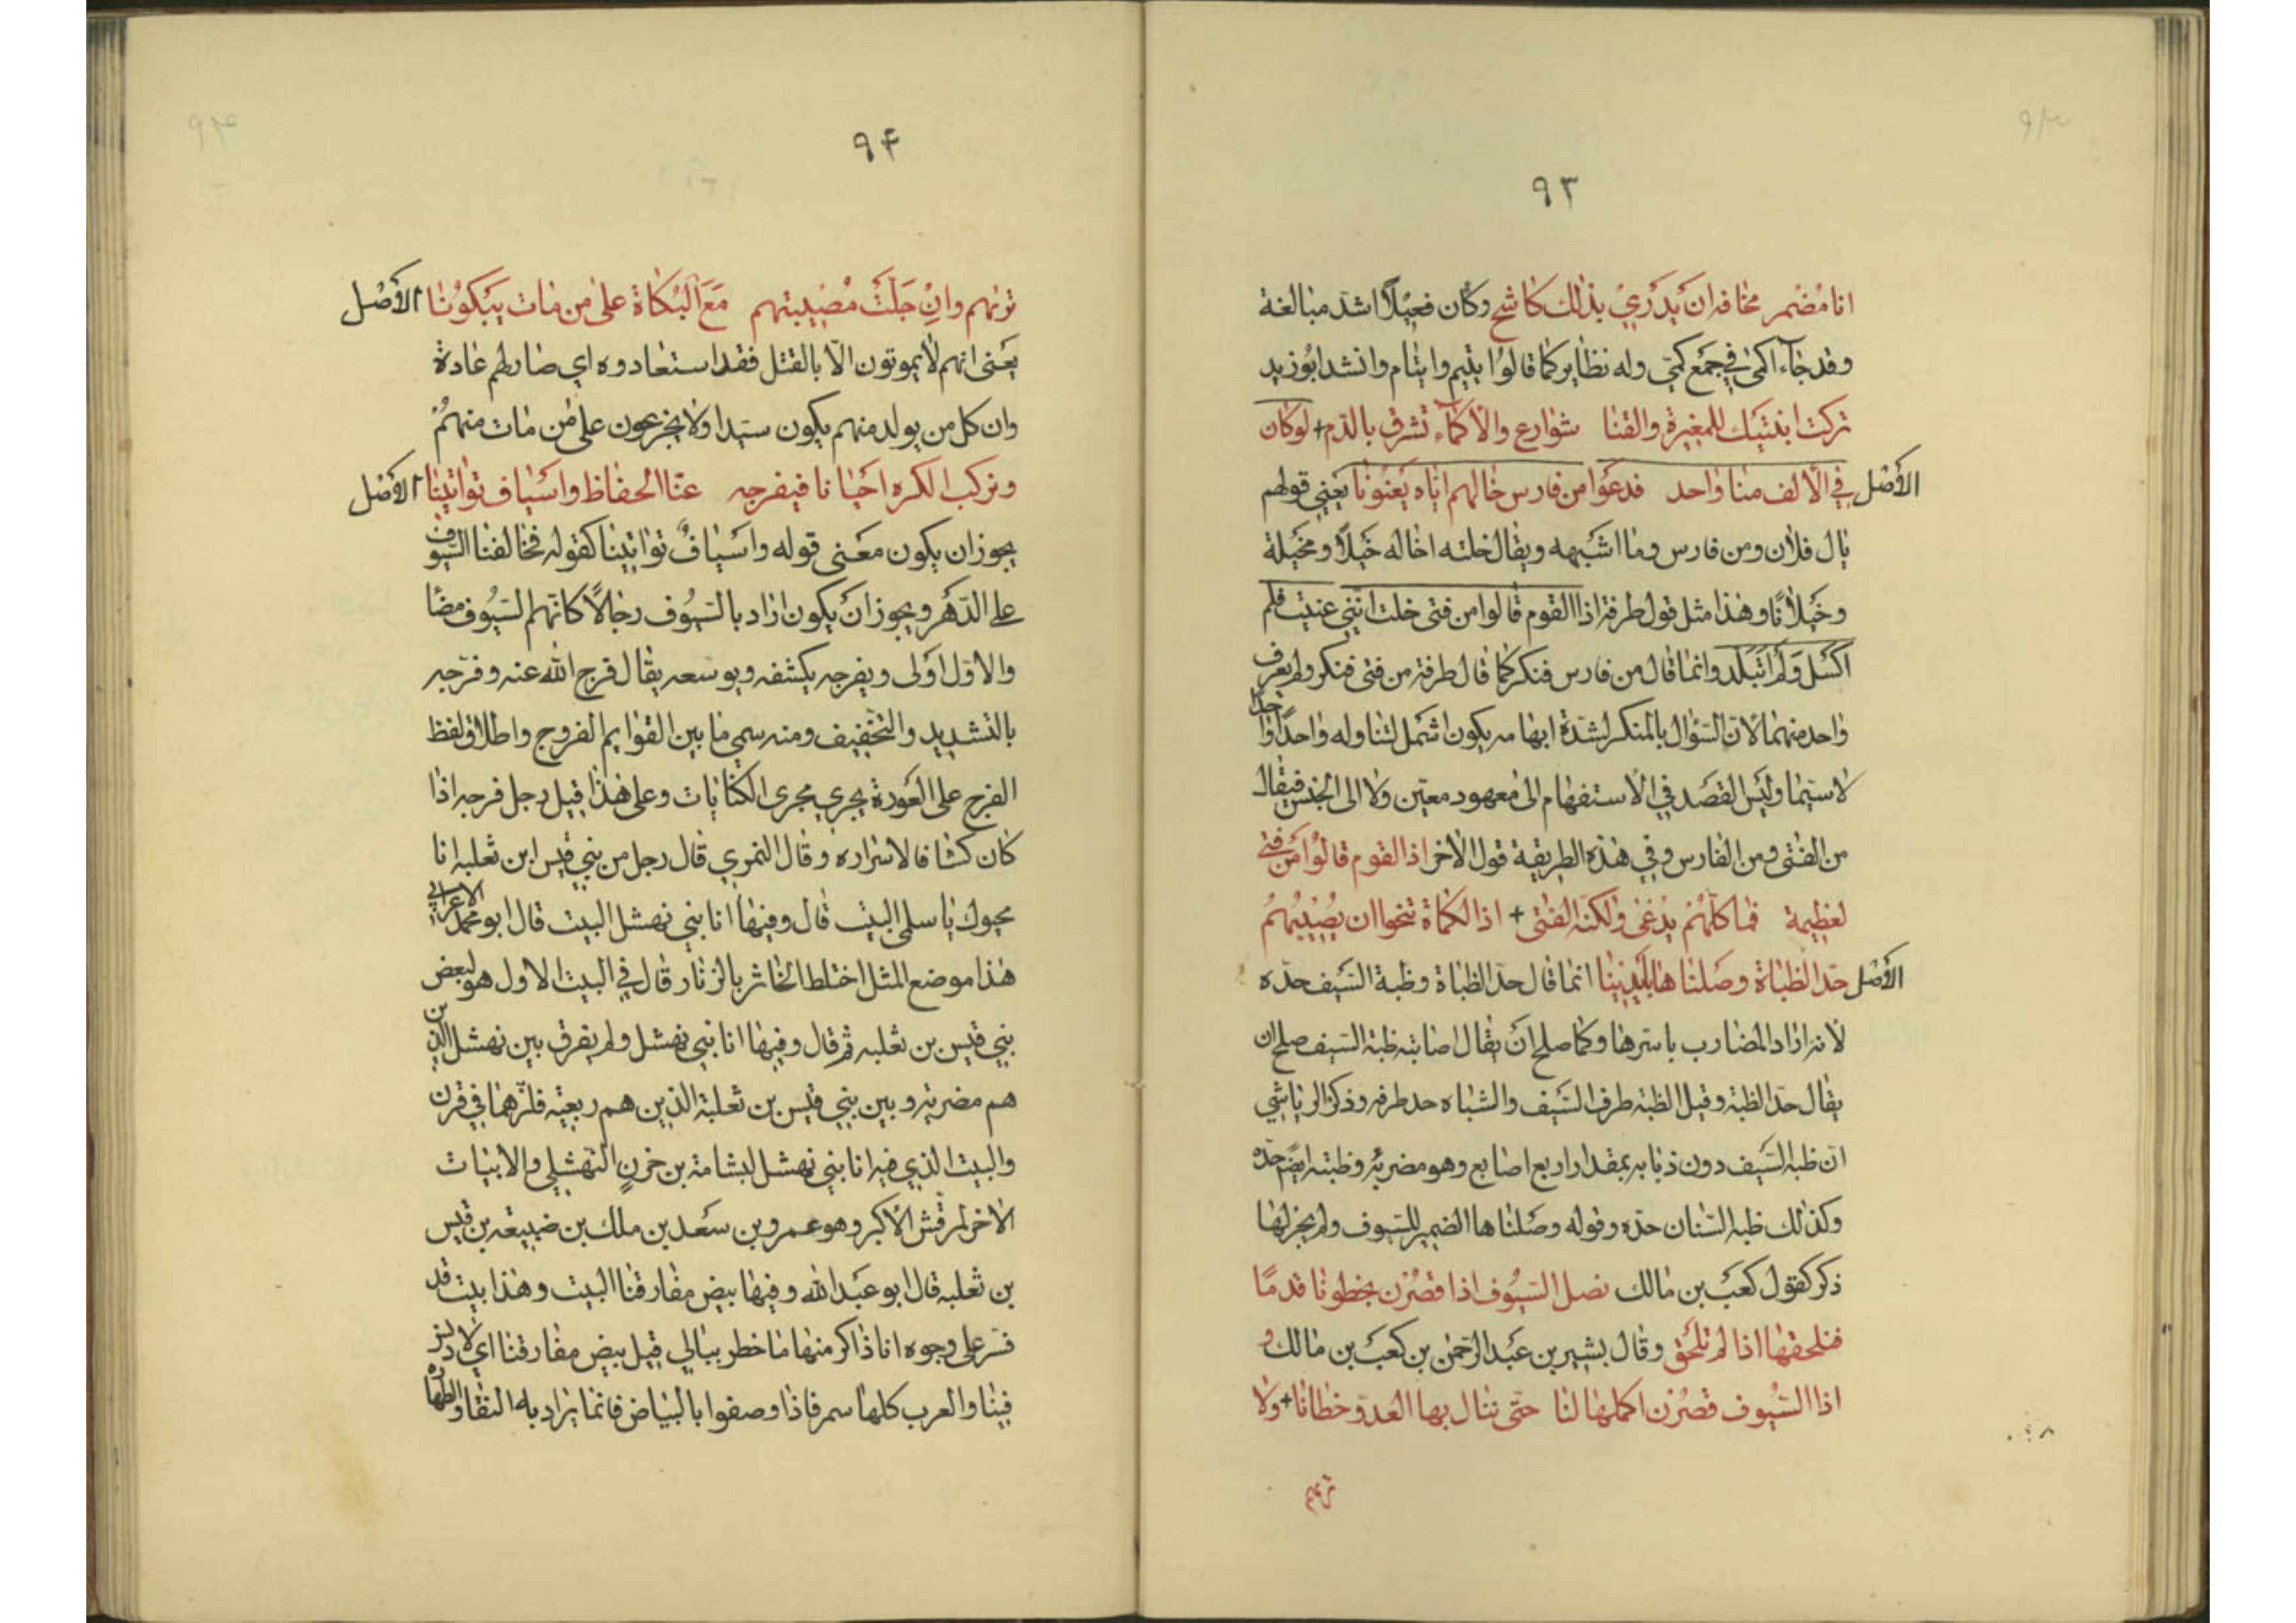 ٩٣
انا مُضْمر مخافه ان يَدْرِيْ بذلك كاشح وكان فعيْلًا اشدّ مبالغة
وقد جاۤء اكمٰى في جمْع كمّى وله نظاير كما قالوُا يتيم وايتام وانشد ابُو زيد
تركت ابنتيك للمغيرة والقنا شوارع والاكماۤء تشرق بالدّم + لوكان
الأصْل في الألف منّا واحد فدعَوا من فارس خالهم ايّاه يَعْنُونَا يَعْنِي قولهم
يال فلان ومن فارس وما اشبهه ويقال خلته اخاله خَيْلًا ومخيلة
وخَيَلانًا وهذا مثل قول طرفة اذا القوم قالوا من فتى خلت انّني عنيت فلم
اكْسَل وَلَم اتَبَلَّد وانما قال من فارس فنكر كما قال طرفة من فتى فنكر ولم يعرف
واحد منهما لانّ السّؤال بالمنكر لشدّة ابهامه يكون اشمل لتناوله واحدًا واحدًا
لاسيّما وليْسَ القصد في الاستفهام الى معهود معيّن ولا الى الجنس فيقال
من الفتى ومن الفارس وفي هذه الطريقة قول الاخر اذا القوم قالوُا مَن فتى
لعظيمة فما كلّهُمْ يُدْعَى ولكنّه الفتى + اذا الكماة تنحّوا ان يُصْيبَهُمُ
الأصْل حدّ الظباة وصَلناها بأيْدِينا انّما قال حدّ الظباة وظبة السّيف حدّه
لانه اراد المضارب باسرها وكما صلح انْ يقال اصابته ظبة السّيف صلح ان
يقال حدّ الظبة وقيل الظبة طرف السّيف والشباه حد طرفه وذكر الرياشي
انّ ظبه السّيف دون ذبابه بمقدار اربع اصابع وهو مضربه وظبته ايضًم حدّه
وكذلك ظبه السّنان حدّه وقوله وصَلناها الضمير للسّيوف ولم يجز لها
ذكر كقول كعْب بن مالك نصل السّيُوف اذا قصُرْن بخطونا قدمًا
فنلحقها اذا لم تلحَق وقال بشير بن عبْد الرّحمٰن بن كعْب بن مالك و
اذا السُّيوف قصُرْن اكملها لنا حتى تنال بها العدوّ خطانا + ولا
ترىٰهم
٩۴
ترىٰهم وانْ جَلَّتْ مُصْيبتهم مَعَ البُكَاة على من مات يَبْكُونا الأصْل
يعْنى انهم لا يموتون الّا بالقتل فقد استعادوه اي صار لهم عادة
وان كل من يولد منهم يكون سيّدا ولا يجزعون على من مات منهمُ
ونركب الكره احْيانا فيفرجه عنّا الحفاظ واسْياف تواتينا الأصْل
يجوز ان يكون معْنى قوله واسْيافٌ تواتينا كقوله فخالفنا السّيوف
على الدّهْر ويجوز انْ يكون اراد بالسّيُوف رجالًا كانّهم السّيُوف مضًا
والاوّل اوْلى ويفرجه يكشفه ويوسعه يقال فرج الله عنه وفرّجه
بالتشديد والتخفيف ومنه سمي ما بين القوايم الفروج واطلاق لفظ
الفرج على العَورة يجري مجرى الكنايات وعلى هذا قيل رجل فرجه اذا
كان كشافا لاسْراره وقال النمري قال رجل من بني قيس ابن ثعلبه انا
محيوك يا سلمى البيت قال وفيها انا بني نهشل البيت قال ابو محمد الاعرابي
هٰذا موضع المثل اختلط الخاثر بالزثار قال في البيت الاول هو لبعض
بني قيس بن ثعلبه ثم قال وفيها انا بني نهشل ولم يفرق بين نهشل الذين
هم مضريّه وبين بني قيس بن ثعلبة الذين هم ربعيّه فلزّهما في قرن
والبيت الذي فيه انا بني نهشل لبشامة بن حزنٍ النّهشلي والابيات
الاخر لمرقّش الاكبر وهو عمرو بن سعْد بن ملك بن ضبيعه بن قيس
بن ثعلبه قال ابو عبْد الله وفيها بيض مفارقنا البيت وهذا بيت قد
فسّر على وجوه انا ذاكر منها ما خطر ببالي قيل بيض مفارقنا اي لا دنز
فينا والعرب كلها سمر فاذا وصفوا بالبياض فانما يراد به النقاء والطهاره